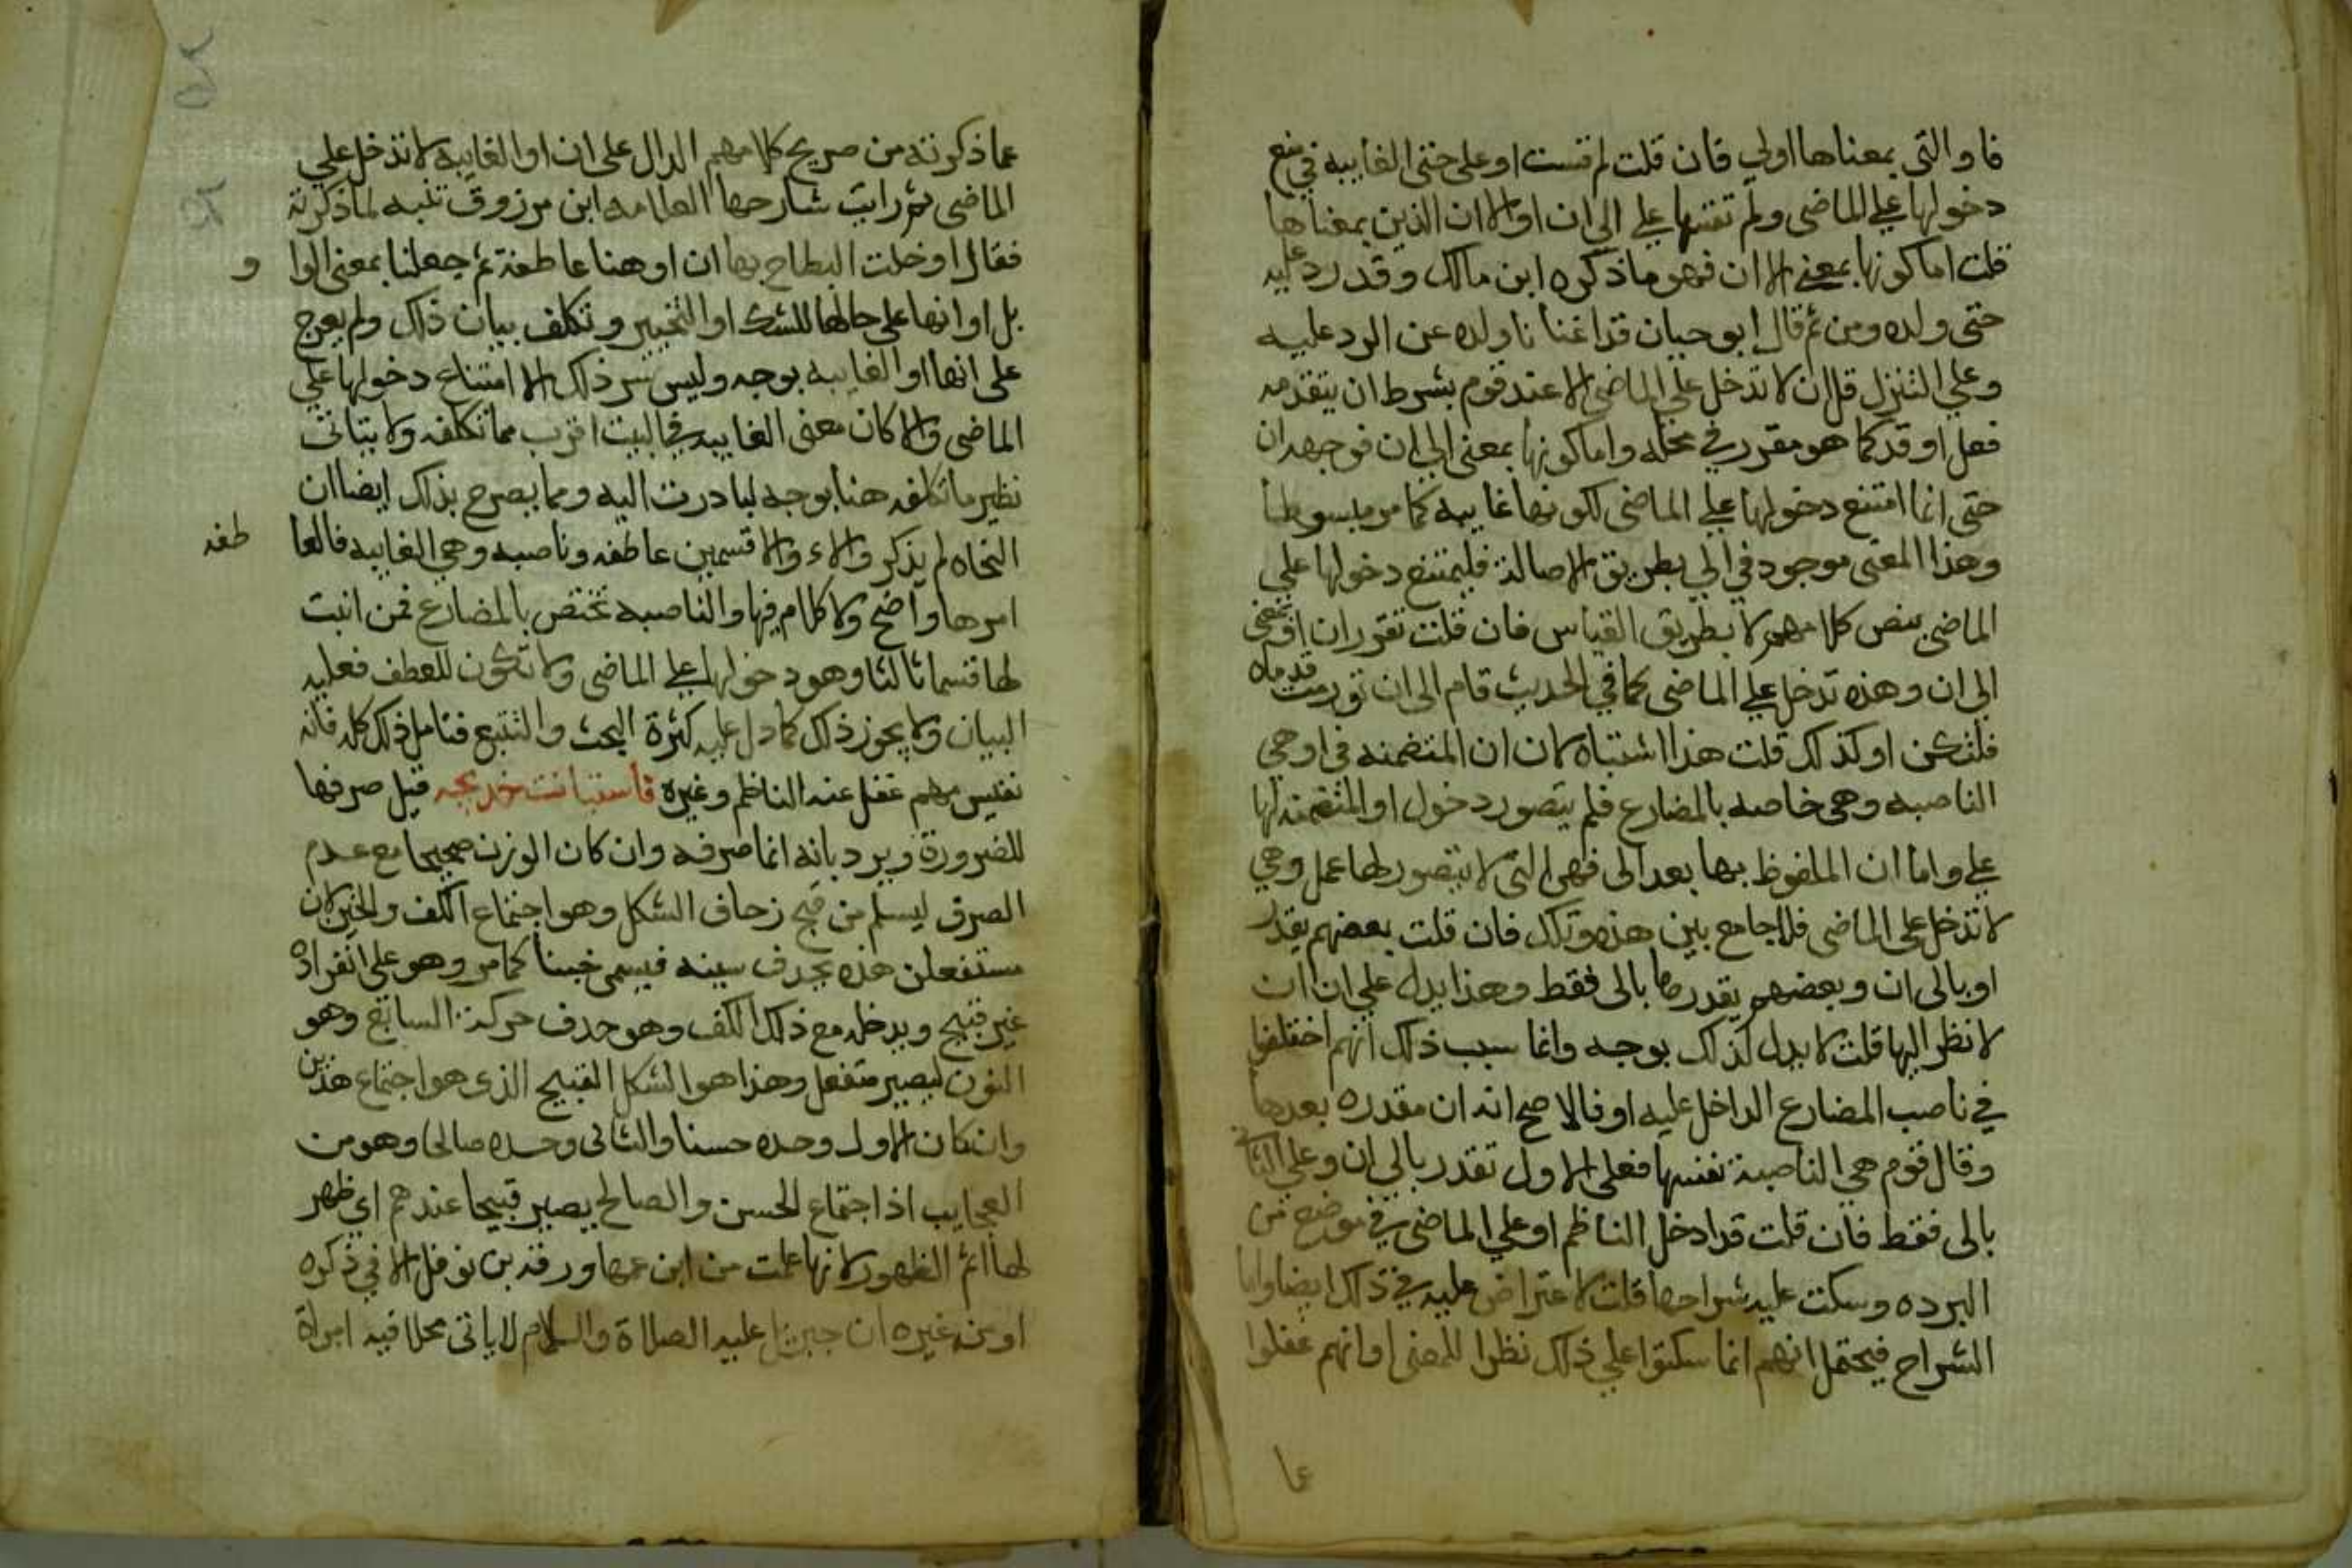 فاو التي بمعناها اولي فان قلت لم قست او على حتى الغاييه في منع
دخولها علي الماضي ولم تقسها علي الي ان او الا ان الذين بمعناها
قلت اما كونها بمعنى الا ان فهو ما ذكره ابن مالك وقد رد عليه
حتى ولده ومن ثم قال ابو حيان قد اغنانا ولده عن الرد عليه
وعلي التنزل قلان لا تدخل علي الماضي الا عند قوم بشرط ان يتقدمه
فعل او قد كما هو مقرر في محله واما كونها بمعنى الي ان فوجهه ان
حتى انما امتنع دخولها علي الماضي لكونها غاييه كما مر مبسوطا
وهذا المعنى موجود في الي بطريق الاصالة فليمتنع دخولها علي
الماضي بنص كلامهم لا بطريق القياس فان قلت تقرر ان او بمعنى
الي ان وهذه تدخل علي الماضي كما في الحديث قام الى ان تورمت قدماه
فلتكن او كذلك قلت هذا اشتباه لان ان المتضمنه في او هي
الناصبه وهي خاصه بالمضارع فلم يتصور دخول او المتضمنه لها
علي واما ان الملفوظ بها بعد الى فهي التي لا يتصور لها عمل وهي
لا تدخل على الماضي فلا جامع بين هذه وتلك فان قلت بعضهم يقدر
او بالى ان وبعضهم يقدرها بالى فقط وهذا يدل علي ان ان
لا نظر اليها قلت لا يدل لذلك بوجه وانما سبب ذلك انهم اختلفوا
في ناصب المضارع الداخل عليه او فالاصح انه ان مقدره بعدها
وقال قوم هي الناصبة نفسها فعلى الاول تقدر بالي ان وعلي الثاني
بالى فقط فان قلت قد ادخل الناظم او علي الماضي في موضع من
البرده وسكت عليه شراحها قلت لا اعتراض عليه في ذلك ايضا واما
الشراح فيحتمل انهم انما سكتوا علي ذلك نظرا للمعنى او انهم غفلوا
عما
عما ذكرته من صريح كلامهم الدال على ان او الغاييه لا تدخل علي
الماضي ثم رايت شارحها العلامه ابن مرزوق تنبه لما ذكرته
فقال او خلت البطاح بها ان او هنا عاطفة ثم جعلنا بمعنى الوا و
بل او انها علي حالها للشك او التخيير وتكلف بيان ذلك ولم يعرج
على انها او الغاييه بوجه وليس سر ذلك الا امتناع دخولها علي
الماضي والا كان معنى الغاييه في البيت اقرب مما تكلفه ولا يتاتى
نظير ما تكلفه هنا بوجه لبادرت اليه ومما يصرح بذلك ايضا ان
النحاه لم يذكروا لاو الا قسمين عاطفه وناصبه وهي الغاييه فالعا طفه
امرها واضح ولا كلام فيها والناصبه تختص بالمضارع فمن اثبت
لها قسما ثالثا وهو دخولها علي الماضي ولا تكون للعطف فعليه
البيان ولا يجوز ذلك كما دل عليه كثرة البحث والتتبع فتامل ذلك كله فانه
نفيس مهم غفل عنه الناظم وغيره فاستبانت خديجه قيل صرفها
للضرورة ويرد بانه انما صرفه وان كان الوزن صحيحا مع عدم
الصرف ليسلم من قبح زحاف الشكل وهو اجتماع الكف والخبن لان
مستفعلن هذه بحذف سينه فيسمى خبنا كما مر وهو على انفراده
غير قبيح ويدخله مع ذلك الكف وهو حذف حركة السابع وهو
النون ليصير متفعل وهذا هو الشكل القبيح الذي هو اجتماع هذين
وان كان الاول وحده حسنا والثاني وحده صالحا وهو من
العجايب اذ اجتماع الحسن والصالح يصير قبيحا عندهم اي ظهر
لها اتم الظهور لانها علمت من ابن عمها ورقة بن نوفل الا في ذكره
او من غيره ان جبريل عليه الصلاة والسلام لا ياتى محلا فيه امراة